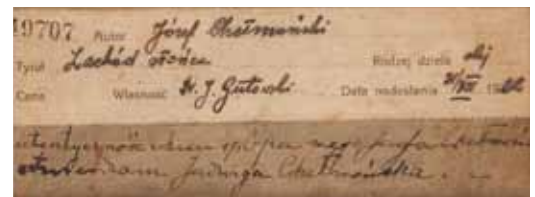 19707 Autor Józef Chełmoński
Tytuł Zachód słońca Rodzaj dzieła olej
Cena Własność W. J. Gutowski Data nadesłania 31/XII 19
autentyczność obrazu mego
stwierdzam Jadwiga Chełmońska